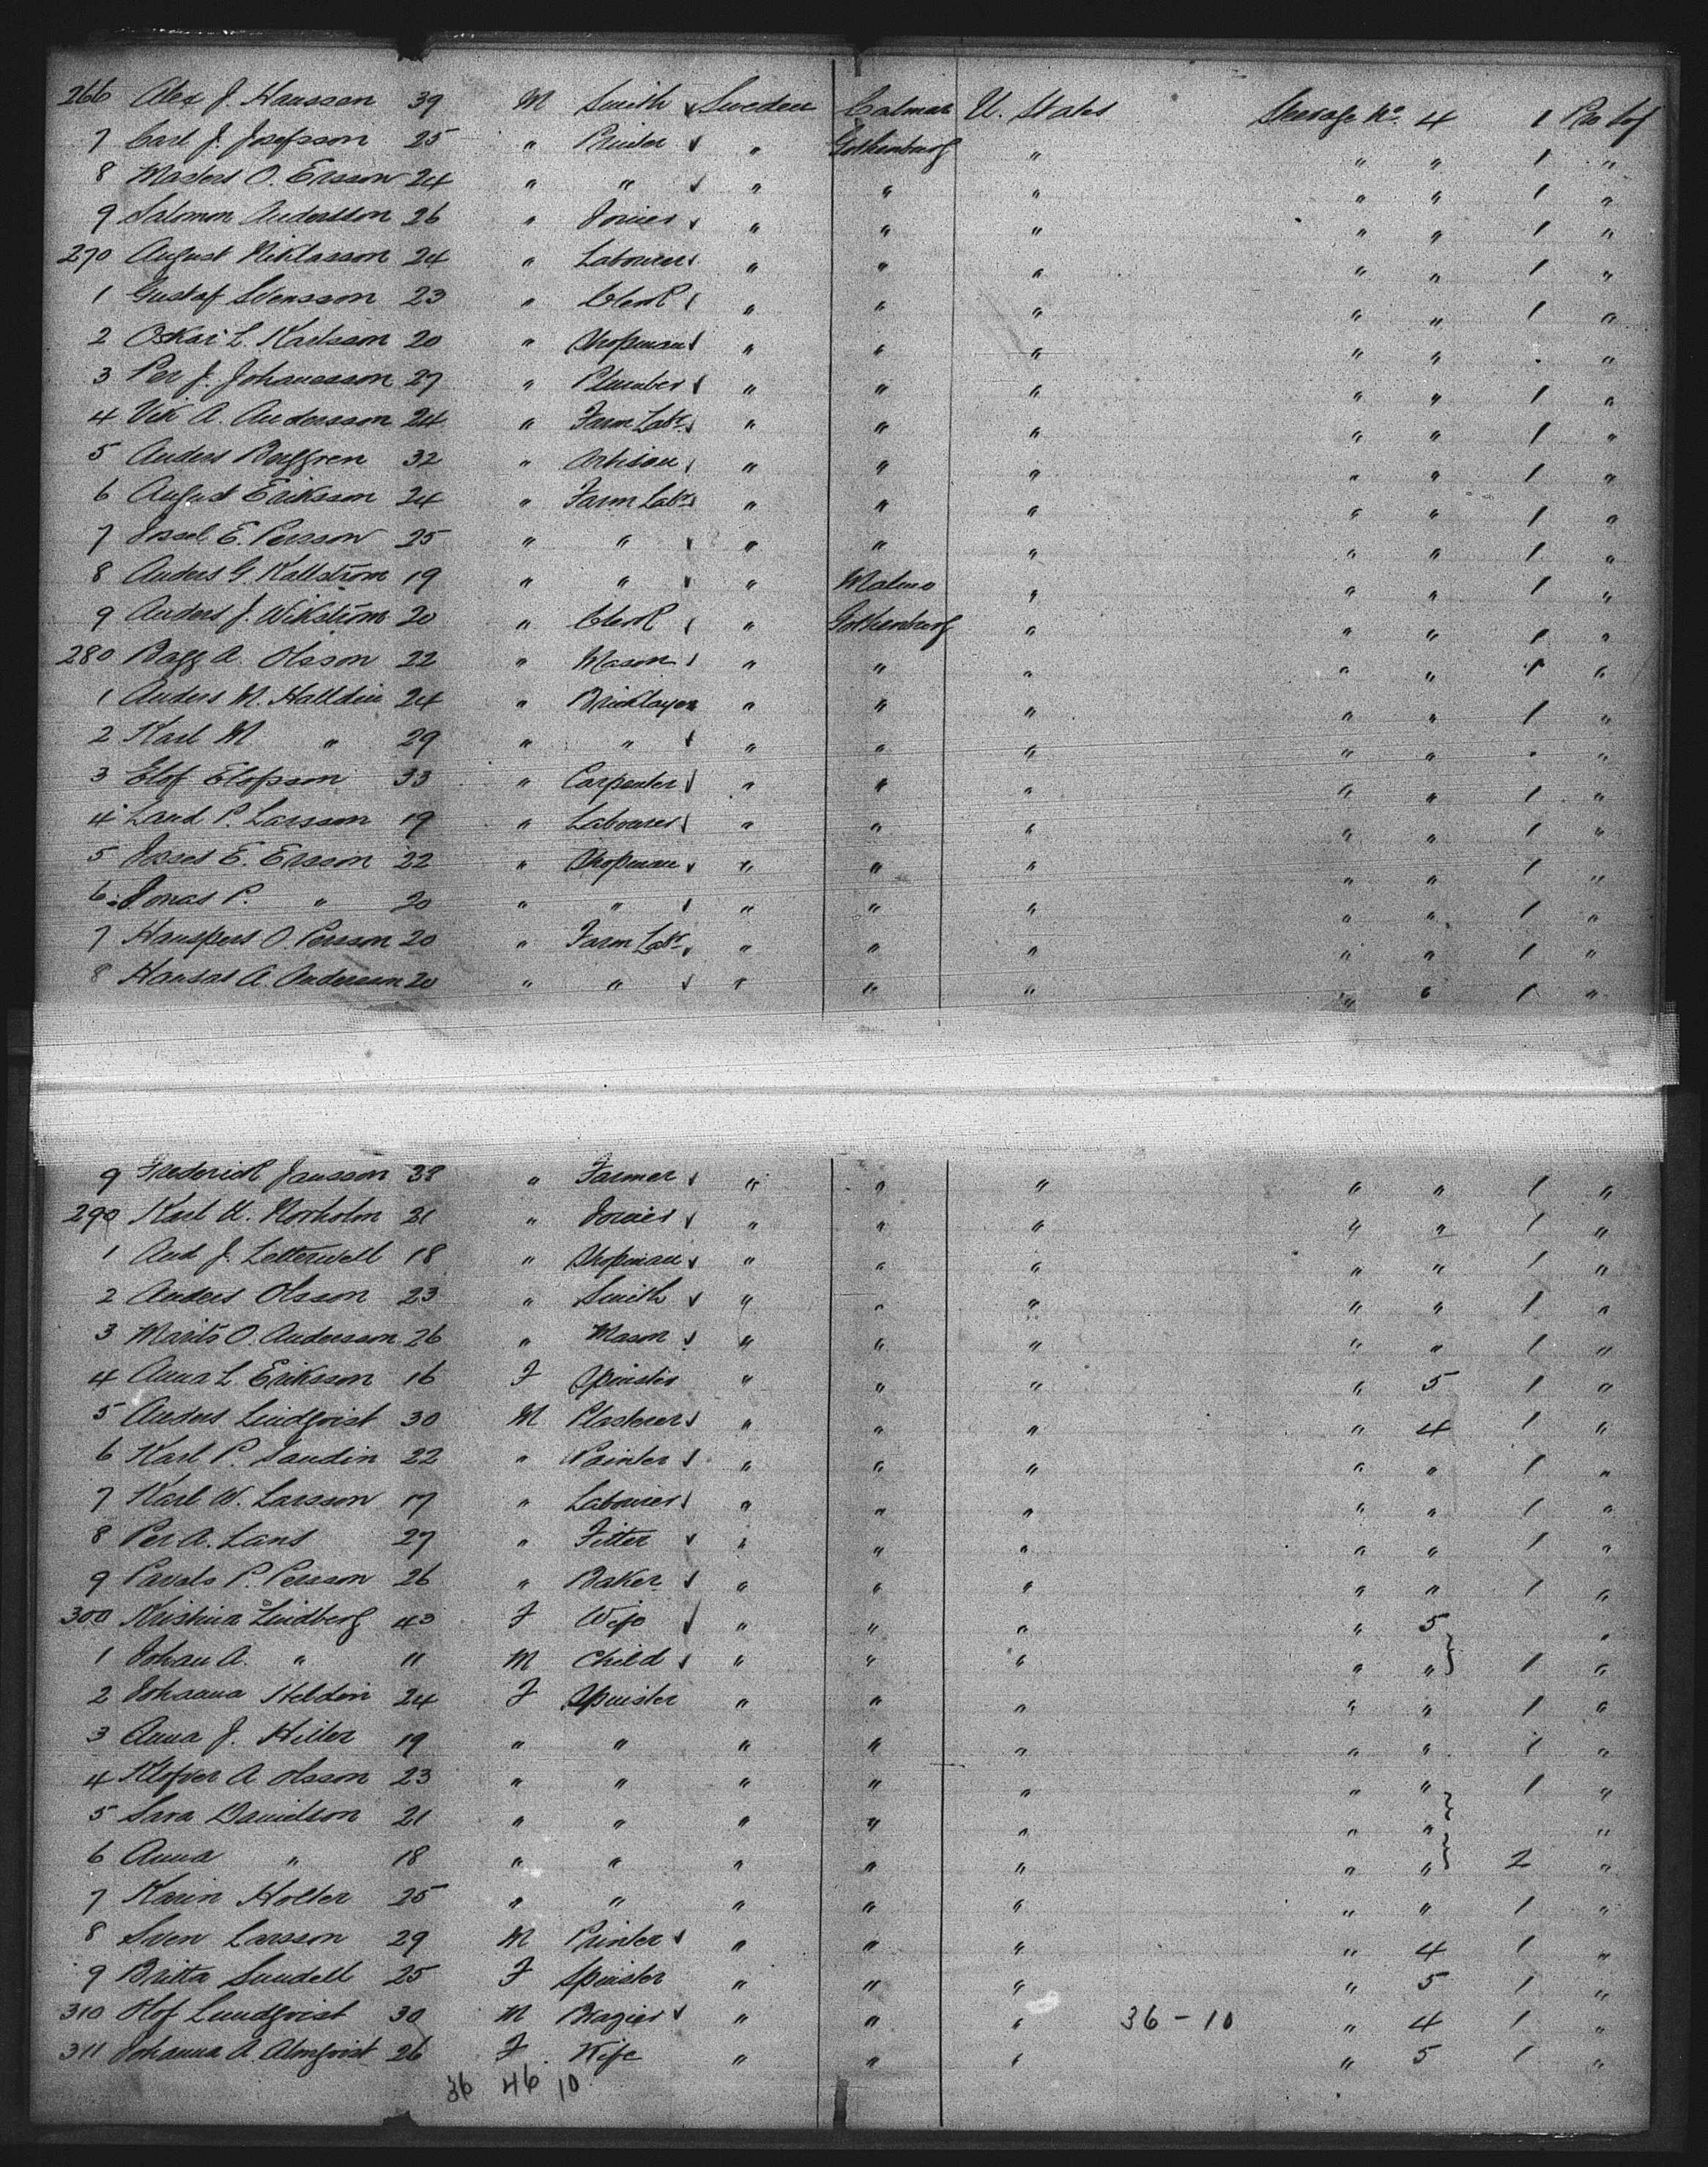 266 Alex J. Hansson 39 M Smith Sweden Calmar U. States Steerage No. 4 1 Pro tof
7 Carl J. Josefsson 25 " Printer " Gothenburg " " " 1 "
8 Maders O. Ersson 24 " " " " " " " 1 "
9 Salomon Andersson 26 " Joiner " " " " " 1 "
270 August Niklasson 24 " Labourer " " " " " 1 "
1 Gustaf Svensson 23 " Clerk " " " " " 1 "
2 Oskar L. Karlsson 20 " Shopman " " " " " "
3 Per J. Johansson 27 " Plumber " " " " " 1 "
4 Vik A. Andersson 24 " Farm Labr " " " " " 1 "
5 Anders Berggren 32 " Artisan " " " " " 1 "
6 August Eriksson 24 " Farm Labr " " " " " 1 "
7 E. Persson 25 " " " " " " " 1 "
8 Anders G. Kallstrom 19 " " " Malmo " " " 1 "
9 Anders J. Wikstrom 20 " Clerk " Gothenburg " " " 1 "
280 A. Olsson 22 " Mason " " " " " 1 "
1 Anders M. Halldin 24 " Bricklayer " " " " " 1 "
2 Karl M " 29 " " " " " " " "
3 Elof Elofsson 33 " Carpenter " " " " " 1 "
4 Land P. Larsson 19 " Labourer " " " " " 1 "
5 E. Ersson 22 " Shopman " " " " " 1 "
6 Jonas P. " 20 " " " " " " " 1 "
7 Hanspers O. Persson 20 " Farm Labr " " " " " 1 "
8 Hansas A. Anderson 20 " " " " " " 6 1 "
9 Frederick Jansson 38 " Farmer " " " " " 1 "
290 Karl U. Norholm 21 " Joiner " " " " " 1 "
1 And J. Letterwell 18 " Shopman " " " " " 1 "
2 Anders Olsson 23 " Smith " " " " " 1 "
3 Marits O. Andersson 26 " Mason " " " " " 1 "
4 Anna L. Eriksson 16 F Spinster " " " " 5 1 "
5 Anders Lindqvist 30 M Plasterer " " " " 4 1 "
6 Karl P. Sandin 22 " Painter " " " " " 1 "
7 Karl W. Larsson 17 " Labourer " " " " " 1 "
8 Per A. Lans 27 " Fitter " " " " " 1 "
9 P. Persson 26 " Baker " " " " " 1 "
300 Kristina Lindberg 43 F Wife " " " " 5 "
1 Johan A. " 11 M Child " " " " " 1 "
2 Johanna Heldin 24 F Spinster " " " " " 1 "
3 Anna J. Hiller 19 " " " " " " " 1 "
4 Klofver A Olsson 23 " " " " " " " 1 "
5 Sara Danielson 21 " " " " " " " "
6 Anna " 18 " " " " " " " 2 "
7 Karin Holter 25 " " " " " " " 1 "
8 Sven Larsson 29 M Printer " " " " 4 1 "
9 Britta Sundell 25 F Spinster " " " " 5 1 "
310 Olof Lundqvist 30 M Brazier " " " 36 - 10 " 4 1 "
311 Johanna A. Almqvist 26 F Wife " " " " 5 1 "
36 46 10